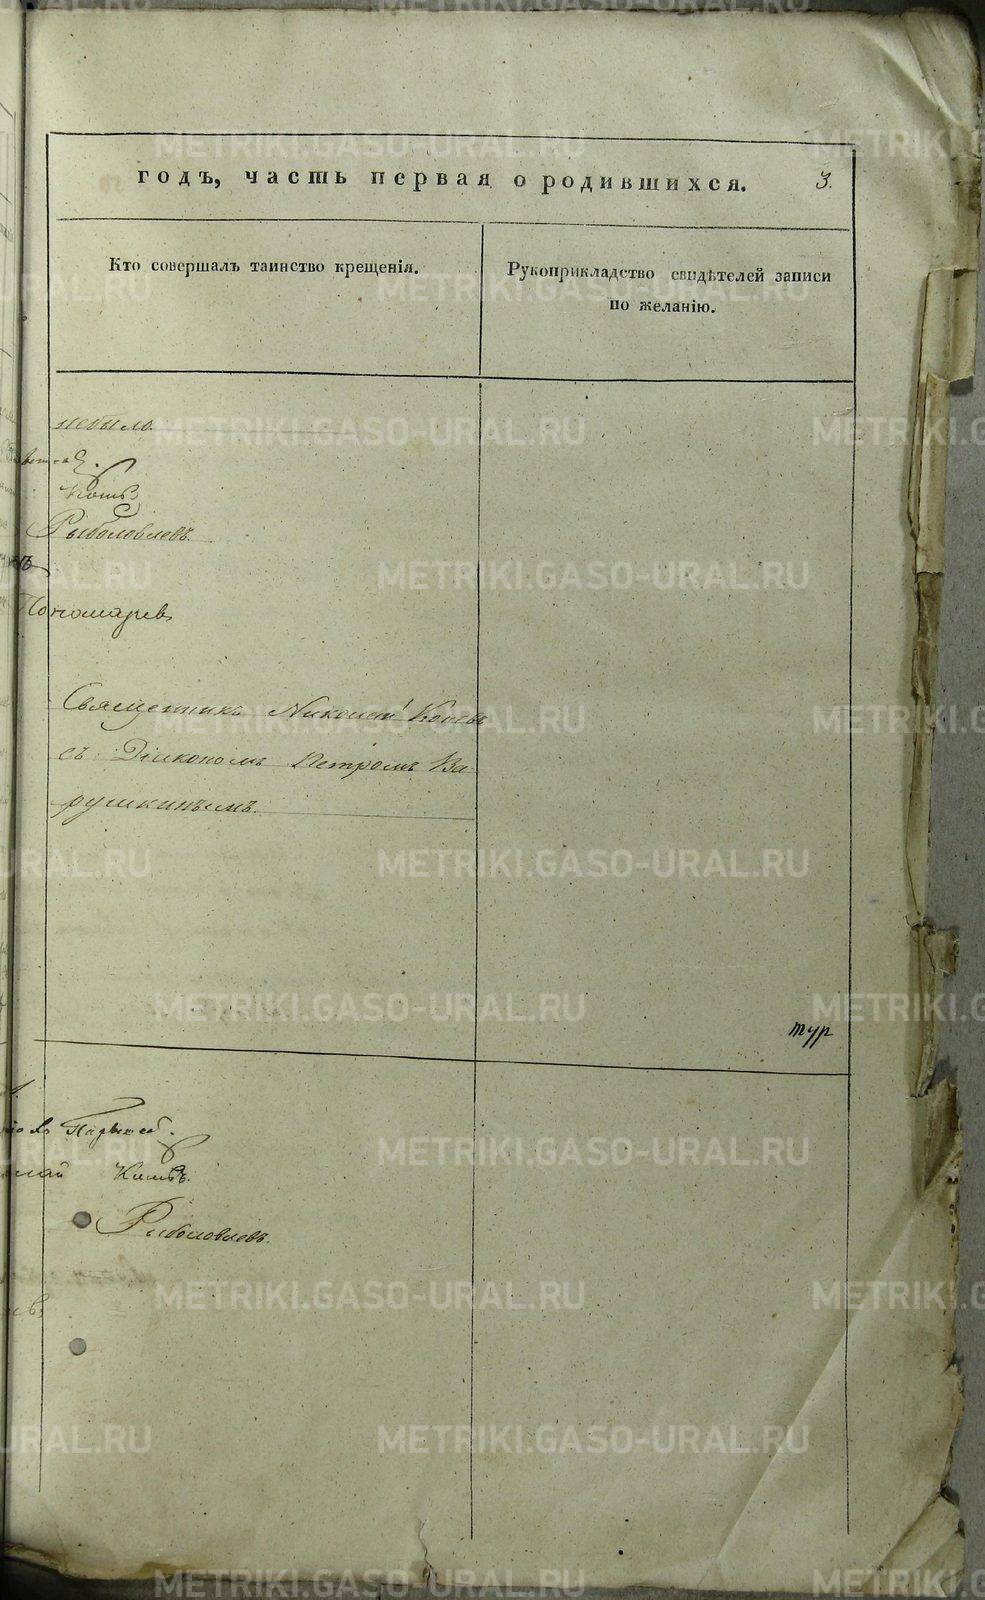 годъ, часть первая о родившихся.
3.
Кто совершалъ таинство крещенія.
Рукоприкладство свидѣтелей записи
по желанію.
небыло.
Рыболовлевъ.
Пономаревъ
Священникъ Николай
съ Діакономъ Петромъ Ва
рушкинымъ.
тур
Рыболовлевъ.
METRIKI.GASO-URAL.RU